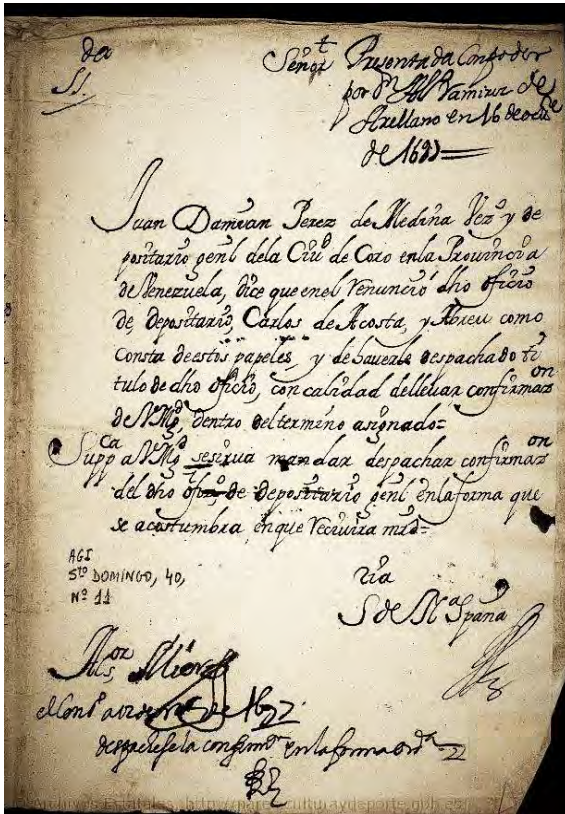 Señor
Presentada Con poder
por Dn Alo Ramirez de
Arellano en 16 de
de 169
Juan Damian Perez de Medina Vezo y de
positario genl dela Ciud de Coro enla Provincia
de Venezuela, dice que enel renunció dho oficio
de, depositario, Carlos de Acosta, y Abreu como
consta de estos papeles, y de hauerle despachado ti
tulo de dho oficio, con calidad de lleuar confirmazon
de V. Mgd, dentro del termino asignado=
Suppca a V. Mgd se sirua mandar despachar confirmazon
del dho ofizo, de depositario genl en la forma que
se acostumbra, en que reciuira mrd=
AGI
STO DOMINGO, 40,
Nº 11
ria
S de Na Spaña
el Conso a de 1692
despachese la confirmon en la forma ordra
Archivos Estatales, http://pares.culturaydeporte.gob.es